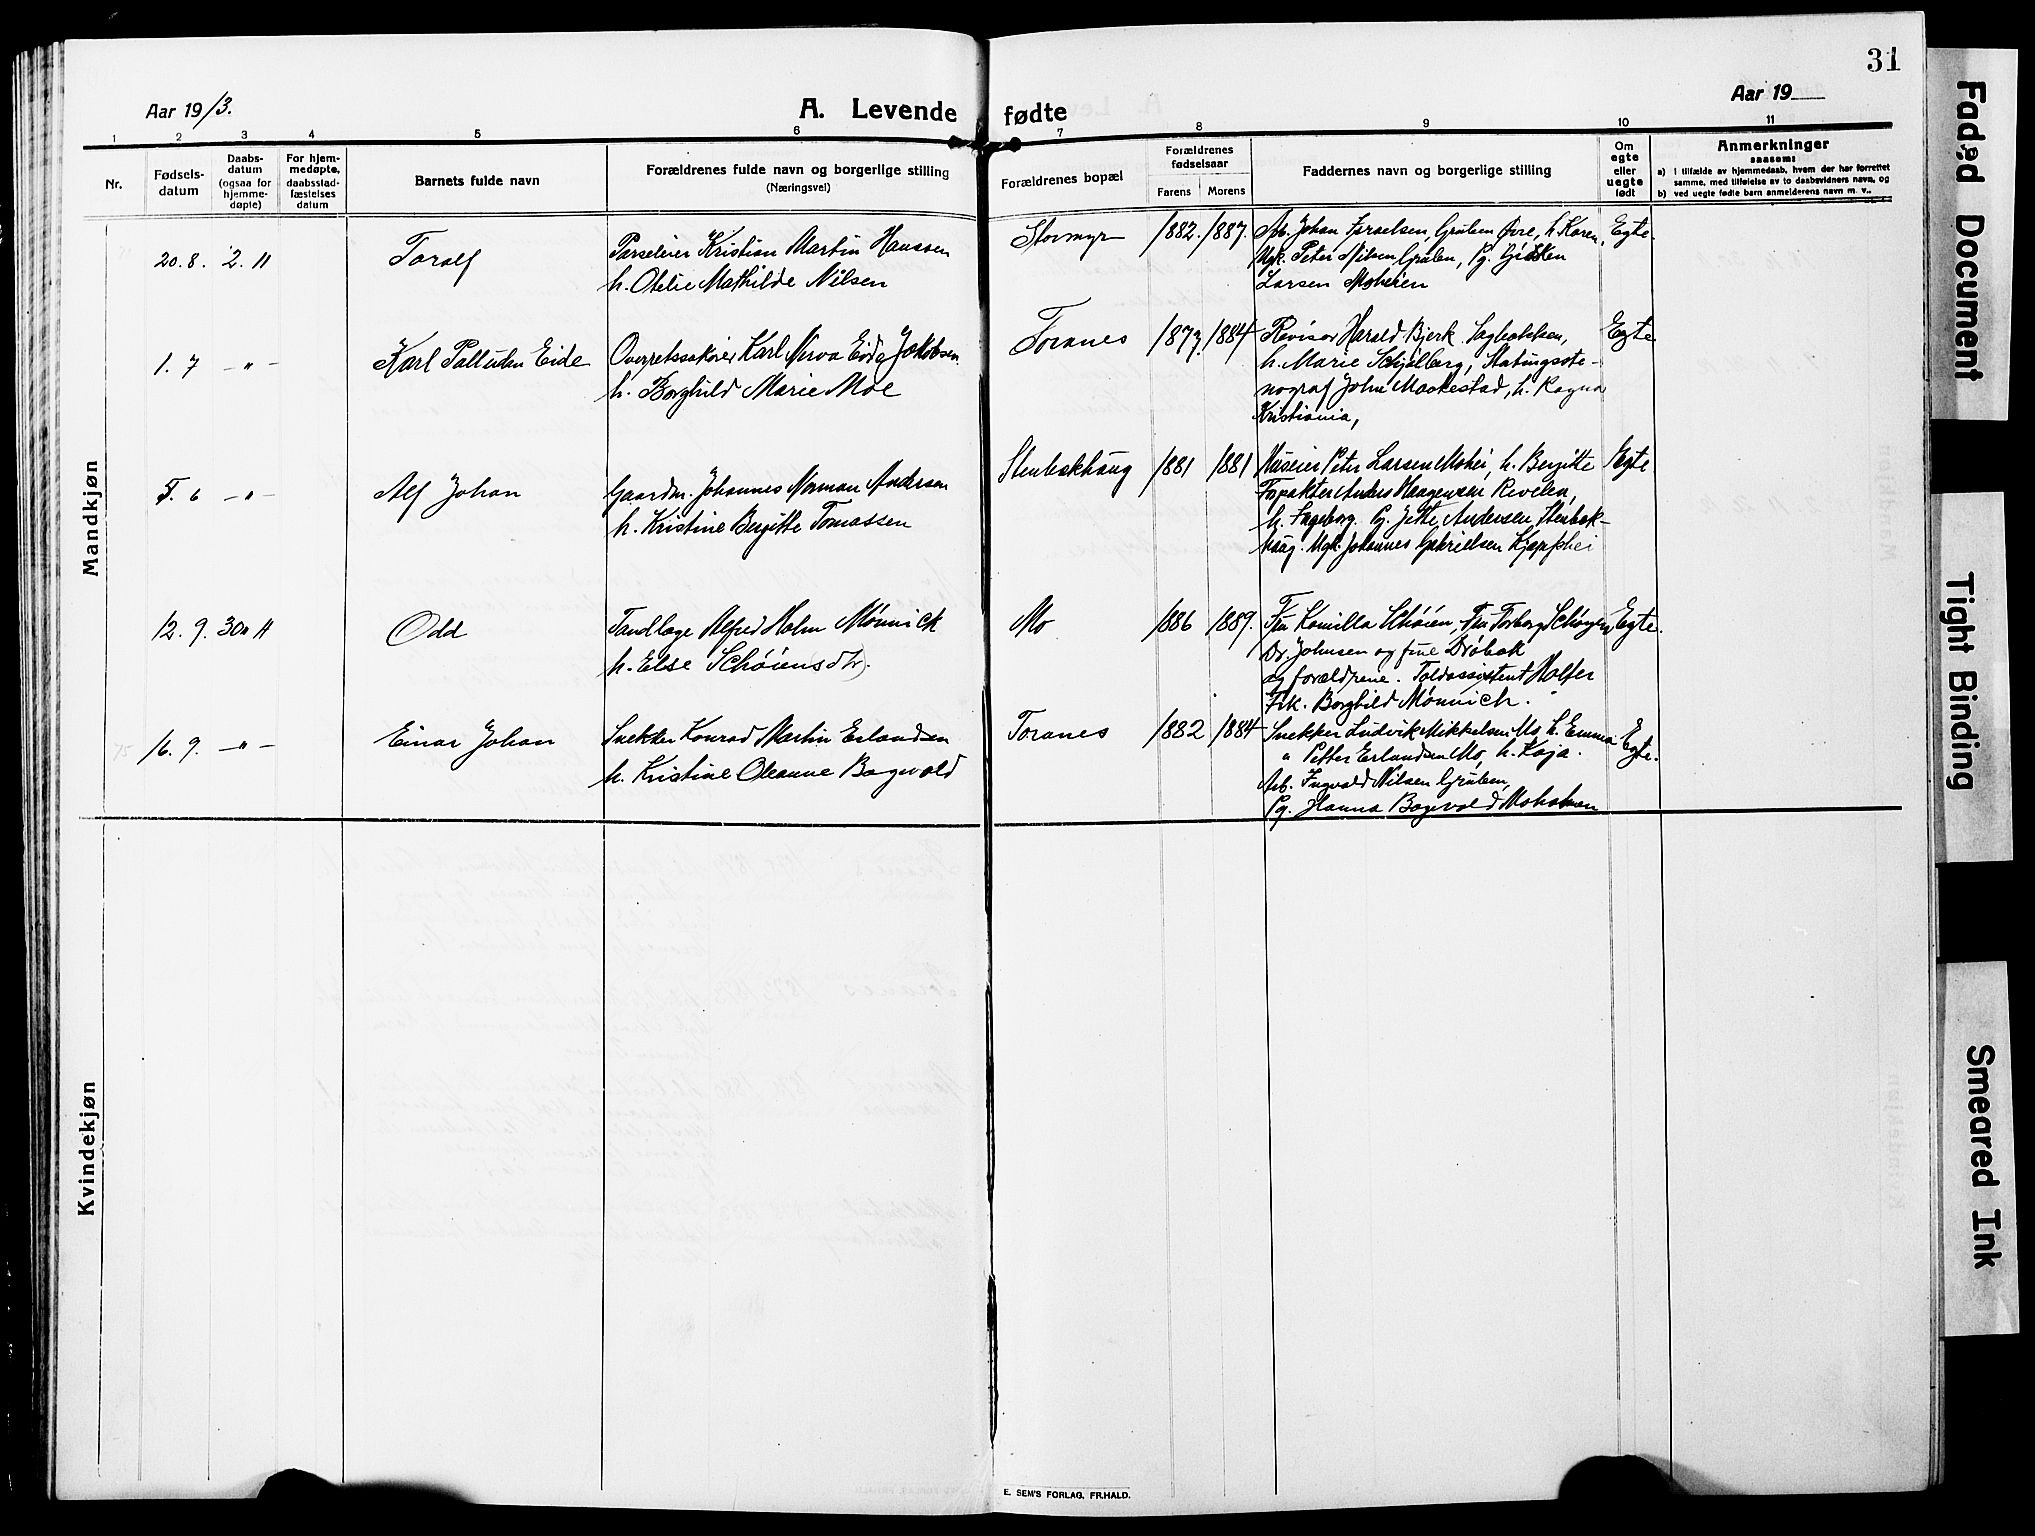 31
Aar 1913.
A. Levende fødte
Aar 19
1 2 3 4 5 6 7 8 9 10 11
Nr.
Fødsels-
datum
Daabs-
datum
(ogsaa for
hjemme-
døpte)
For hjem-
medøpte,
daabsstad-
fæstelses
datum
Barnets fulde navn
Forældrenes fulde navn og borgerlige stilling
(Næringsvei)
Forældrenes bopæl
Forældrenes
fødselsaar
Farens Morens
Faddernes navn og borgerlige stilling
Om
egte
eller
uegte
født
Anmerkninger
saasom:
a) i tilfælde av hjemmedaab, hvem der har forrettet
samme, med tilføielse av to daabsvidners navn, og
b) ved uegte fødte barn anmelderens navn m. v..
Mandkjøn
20. 8. 2. 11 Toralf
Parseleier Kristian Martin Hanssen
h. Otelie Mathilde Nilsen
Stormyr 1882. 1887.
Arb. Johan Israelsen, Gruben Øvre, h. Karen,
Ugk. Peter Nilsen Gruben, Pg.
Larsen Moheien
Egte.
1. 7 -"- Karl Palludan Eide
Overretssakfører Karl Eide Jakobsen
h. Borghild Marie Moe
Toranes 1873. 1884
Revisor Harald Bjerk Sagbakken,
h. Marie Schjelberg, Statingsste-
nograf John Maakestad, h. Ragna
Kristiania,
Egte
5. 6 -"- Alf Johan
Gaardm. Johannes Norman Andersen
h. Kristine Bergitte Tomassen
Stenbakhaug 1881 1881
Huseier Peter Larsen Mohei, h. Bergitte
Forpakter Anders Haagensen Revelen,
h. Ingeborg. Pg. Jette Andersen, Stenbak-
haug. Ugk. Johannes Gabrielsen Kjepphei
Egte
12. 9. 30 11 Odd
Tandlæge Alfred Holm Mønnick
h. Else Schøien
Mo 1886 1889.
Fru Kamilla Schøien, Fru Torborg Schøyen
Dr. Johnsen og frue Drøbak
og forældrene. Toldassistent Holter
Frk. Borghild Mønnich.
Egte.
75 16. 9. -"- Einar Johan
Snekker Konrad Martin Erlandsen
h. Kristine Oleanne Bagevold
Toranes 1882 1884
Snekker Ludvik Mikkelsen Mo, h. Emma
" Petter Erlandsen Mo, h. Kaja.
Arb. Ingvald Nilsen Gruben,
Pg. Hanna Bagevold Moholmen
Egte.
Kvindekjøn
E. SEM'S FORLAG, FR.HALD.
Faded Document
Tight Binding
Smeared Ink